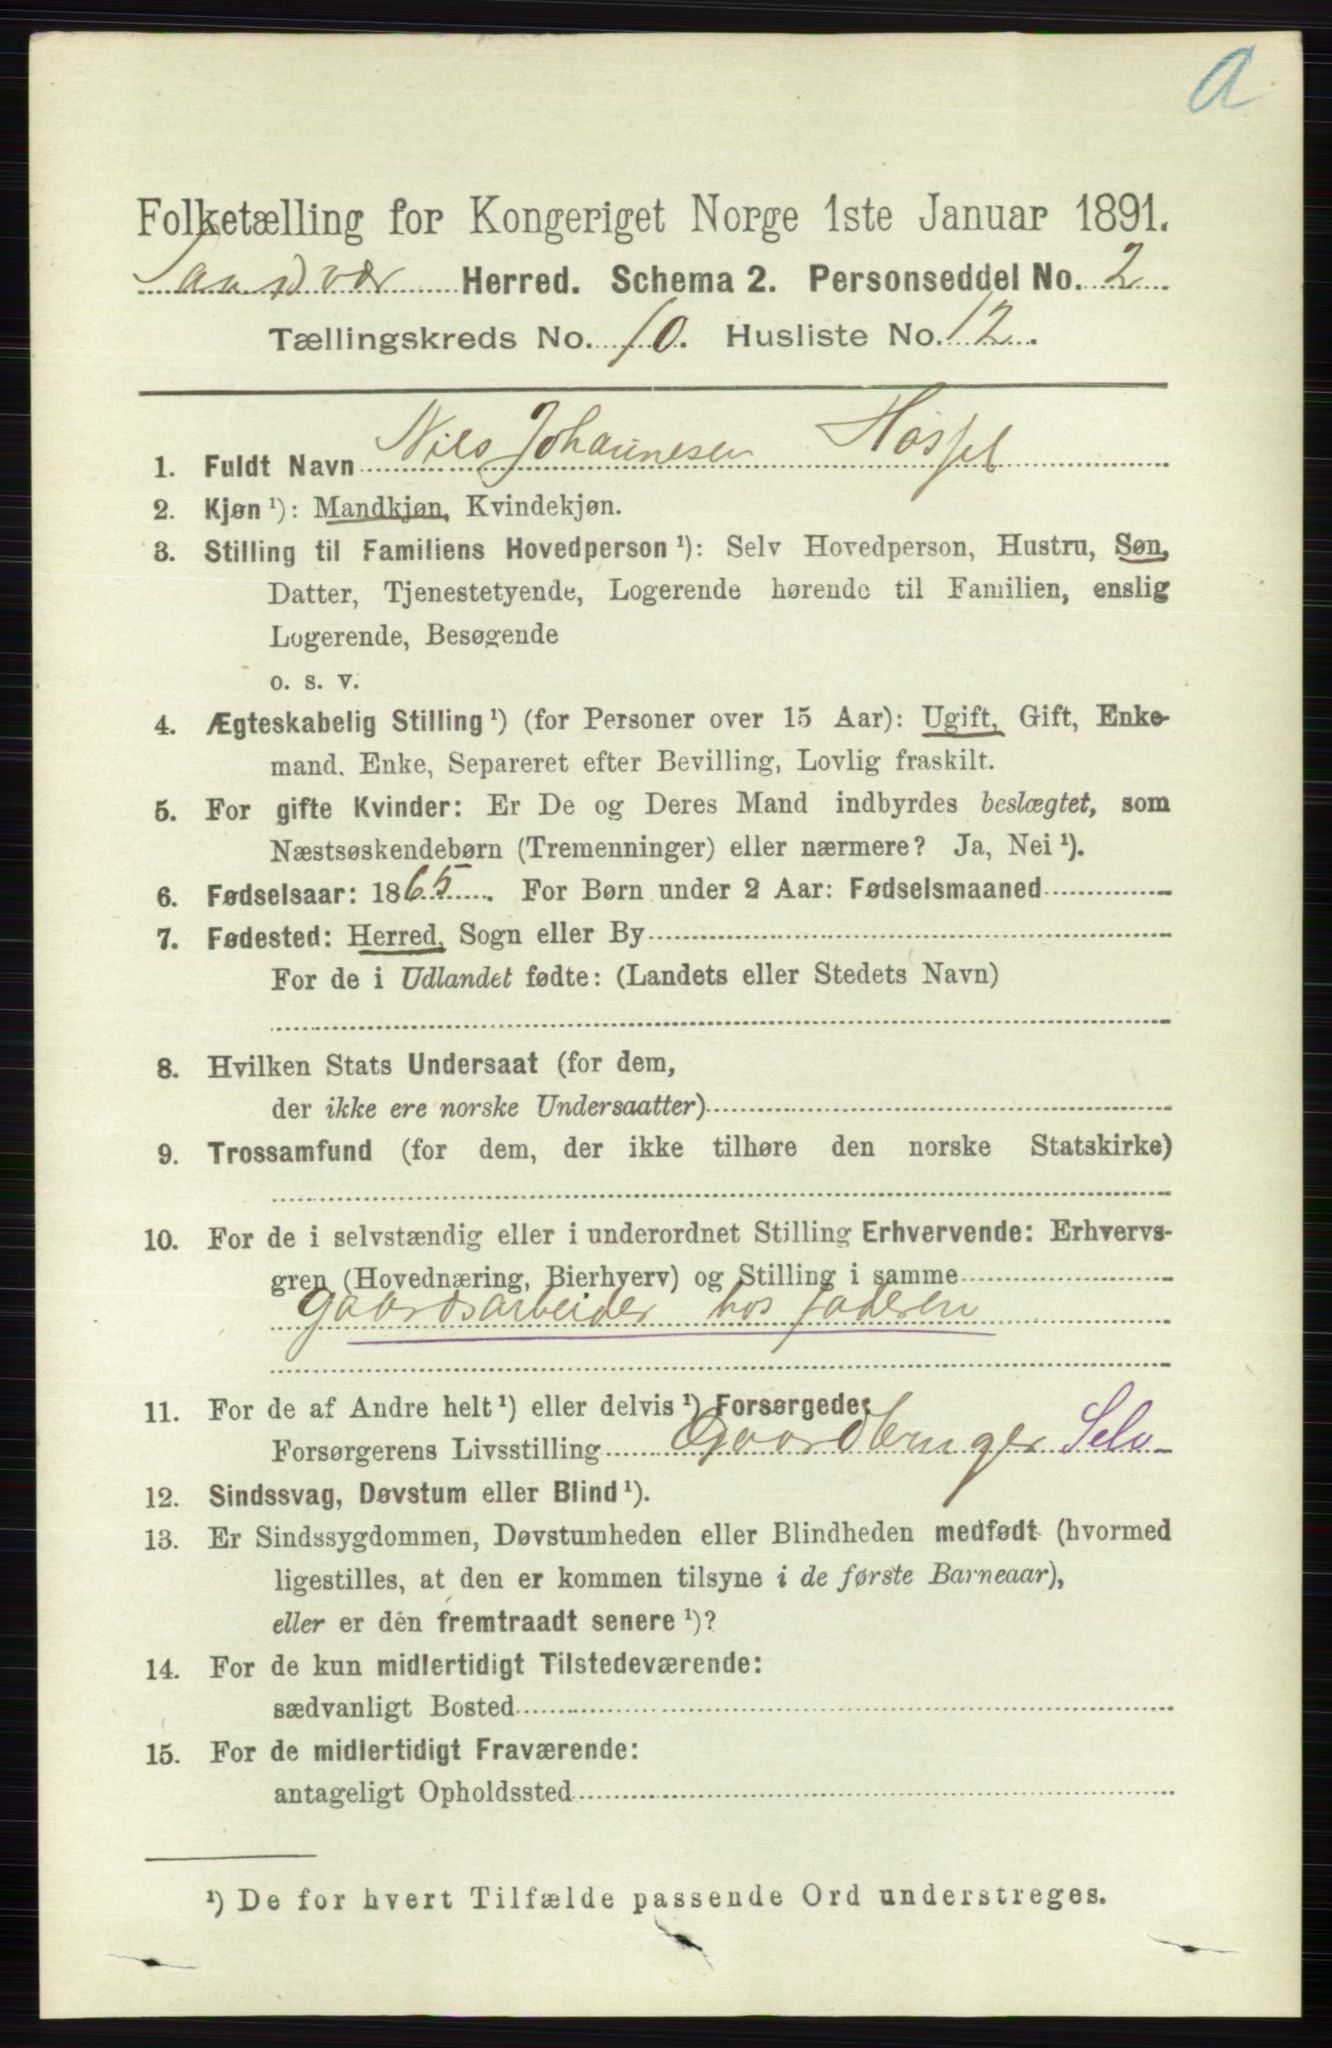 a
Folketælling for Kongeriget Norge 1ste Januar 1891.
Sandsvær Herred. Schema 2. Personseddel No. 2
Tællingskreds No. 10. Husliste No. 12.
1. Fuldt Navn Nils Johannesen
2. Kjøn ¹): Mandkjøn, Kvindekjøn.
3. Stilling til Familiens Hovedperson ¹): Selv Hovedperson, Hustru, Søn,
Datter, Tjenestetyende, Logerende hørende til Familien, enslig
Logerende, Besøgende
o. s. v.
4. Ægteskabelig Stilling ¹) (for Personer over 15 Aar): Ugift, Gift, Enke-
mand, Enke, Separeret efter Bevilling, Lovlig fraskilt.
5. For gifte Kvinder: Er De og Deres Mand indbyrdes beslægtet, som
Næstsøskendebørn (Tremenninger) eller nærmere? Ja, Nei ¹).
6. Fødselsaar: 1865. For Børn under 2 Aar: Fødselsmaaned
7. Fødested: Herred, Sogn eller By
For de i Udlandet fødte: (Landets eller Stedets Navn)
8. Hvilken Stats Undersaat (for dem,
der ikke ere norske Undersaatter)
9. Trossamfund (for dem, der ikke tilhøre den norske Statskirke)
10. For de i selvstændig eller i underordnet Stilling Erhvervende: Erhvervs-
gren (Hovednæring, Bierhverv) og Stilling i samme
Gaardsarbeider hos faderen
11. For de af Andre helt ¹) eller delvis ¹) Forsørgede:
Forsørgerens Livsstilling Gaardbruger Selv
12. Sindssvag, Døvstum eller Blind ¹).
13. Er Sindssygdommen, Døvstumheden eller Blindheden medfødt (hvormed
ligestilles, at den er kommen tilsyne i de første Barneaar),
eller er den fremtraadt senere ¹)?
14. For de kun midlertidigt Tilstedeværende:
sædvanligt Bosted
15. For de midlertidigt Fraværende:
antageligt Opholdssted
¹) De for hvert Tilfælde passende Ord understreges.